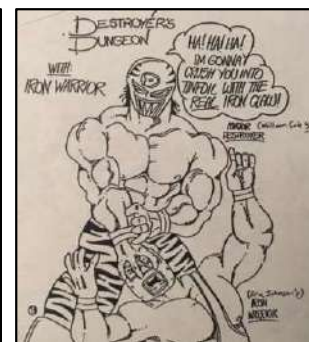 DESTROYER'S
DUNGEON
WITH:
IRON WARRIOR
HA! HA! HA!
IM GONNA
CRUSH YOU INTO
TINFOIL WITH THE
REAL IRON CLAW!
DESTROYER
IRON
WARRIOR